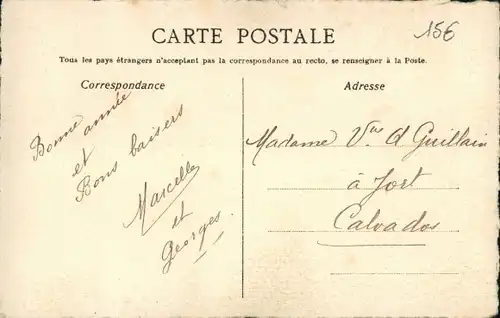 CARTE POSTALE
15€
Tous les pays étrangers n'acceptant pas la correspondance au recto, se renseigner à la Poste.
Correspondance
Bonne année
et
Bons baisers
Marcelle
et
Georges.
Adresse
Madame Vve d Guillain
à Jort
Calvados